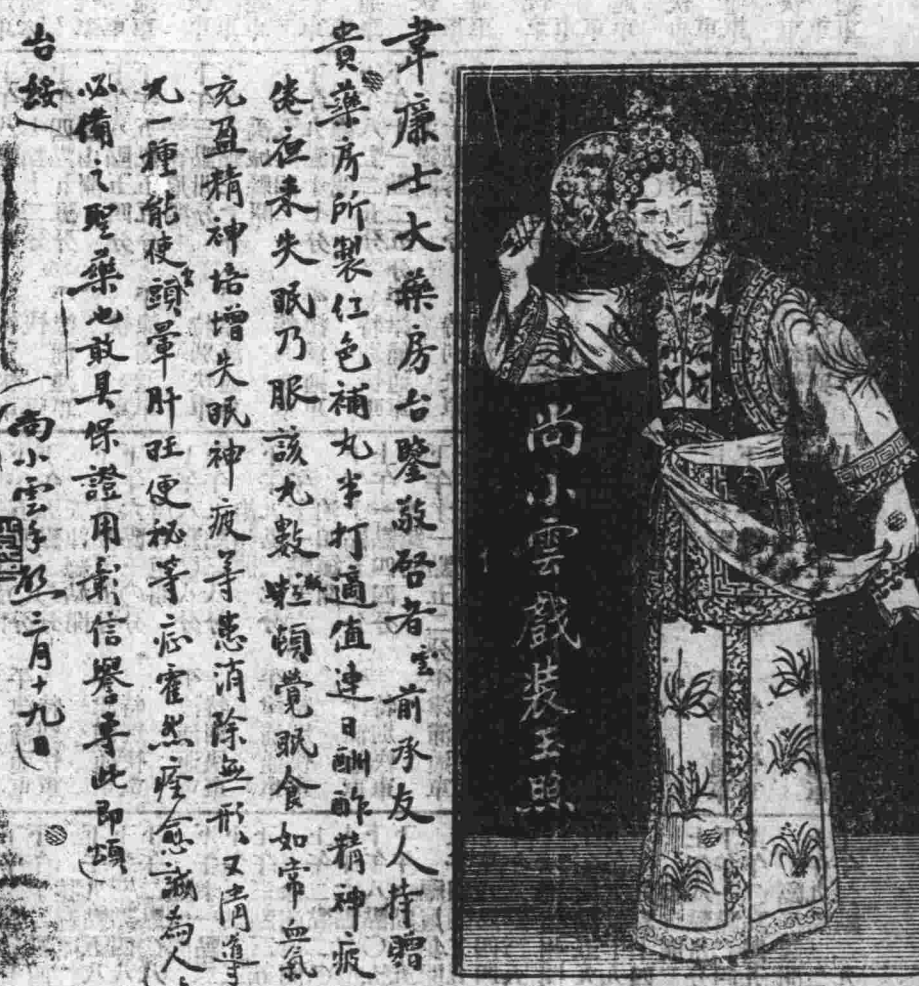 韋廉士大藥房台鑒敬啓者雲前承友人持贈
貴藥房所製红色補丸半打適值連日酬酢精神疲
倦夜来失眠乃服該丸數粒頓覺眠食如常血氣
充盈精神培增失眠神疲等患消除無形又清導
丸一種能使頭暈肝旺便秘等症霍然痊愈誠為人人
必備之聖藥也敢具保證用彰信譽專此即頌
台綏
尚小雲手啟 三月十九日
尚小雲戲裝玉照